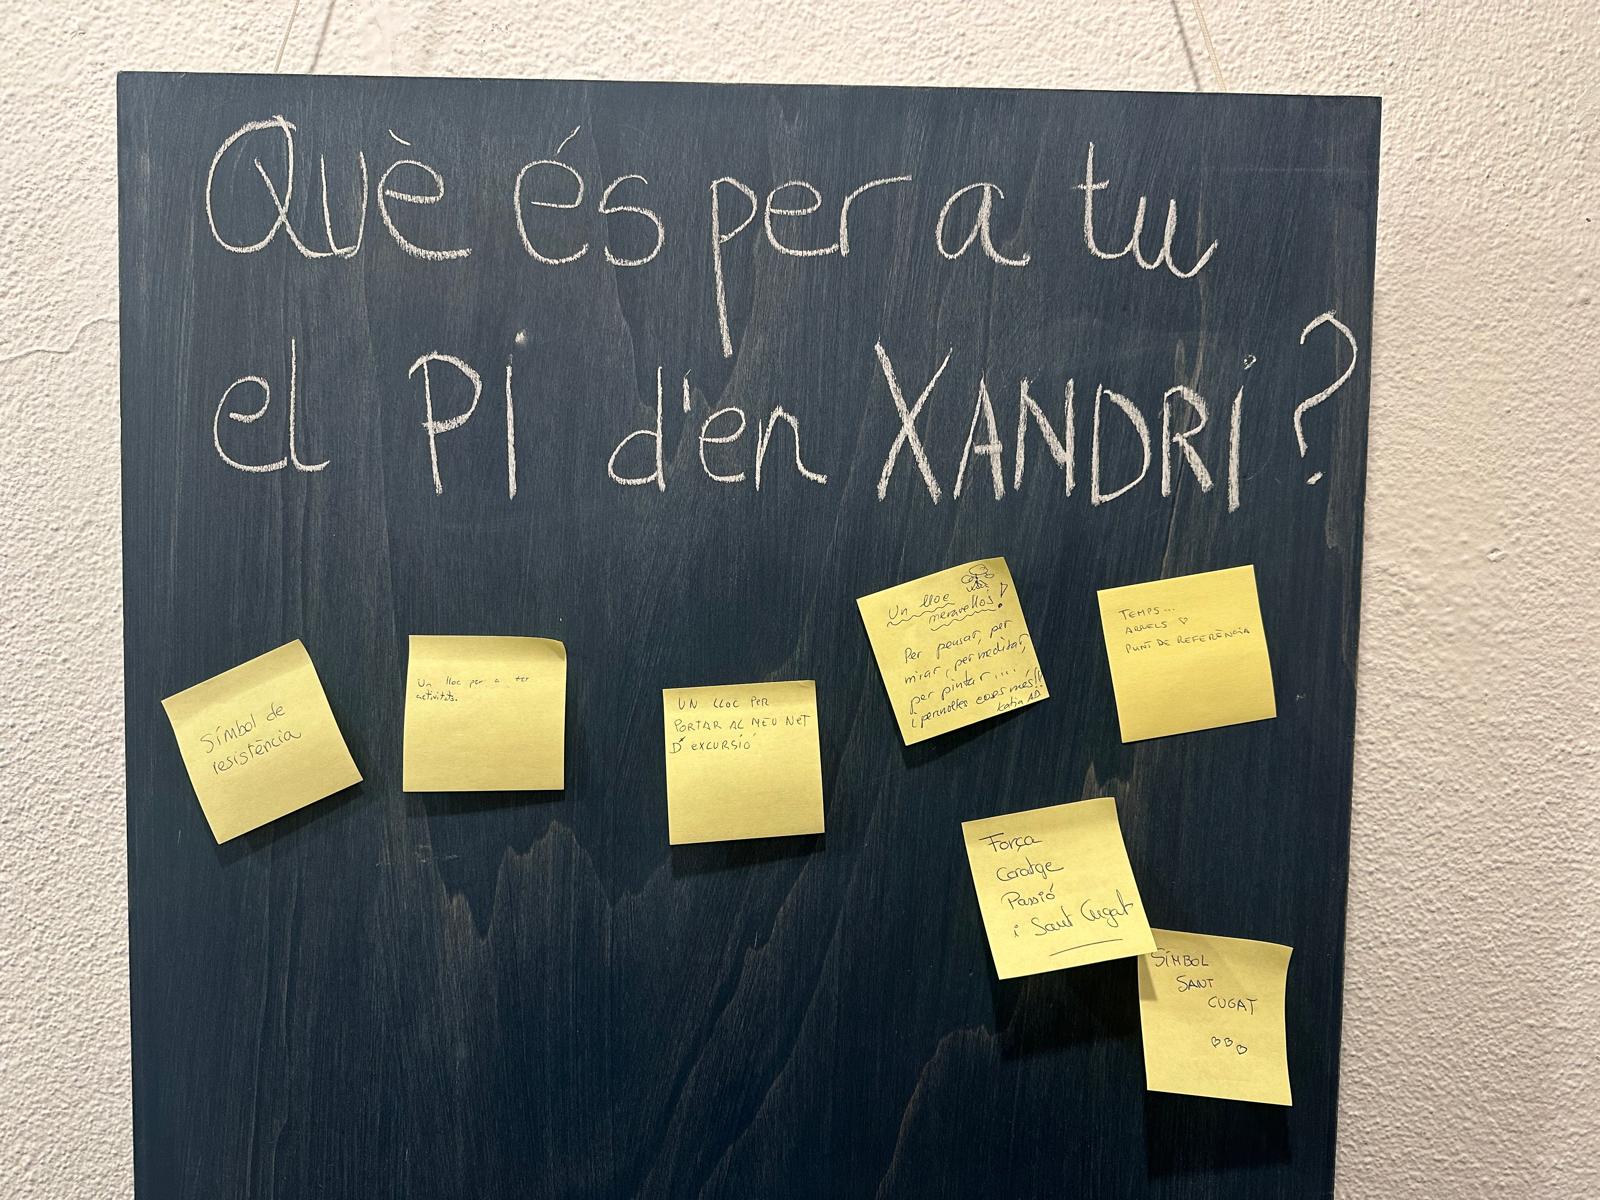 Què és per a tu
el Pi d'en XANDRi?
Símbol de
resistència
Un lloc per a fer
activitats.
UN LLOC PER
PORTAR AL MEU NET
D'EXCURSIÓ
Un lloc
meravellós!
Per pensar, per
mirar, per meditar,
per pintar....
i per moltes coses més!!
Katia AD
TEMPS...
ARRELS ♡
PUNT DE REFERÈNCIA
Força
Coratge
Passió
i Sant Cugat
SÍMBOL
SANT
CUGAT
♡♡♡